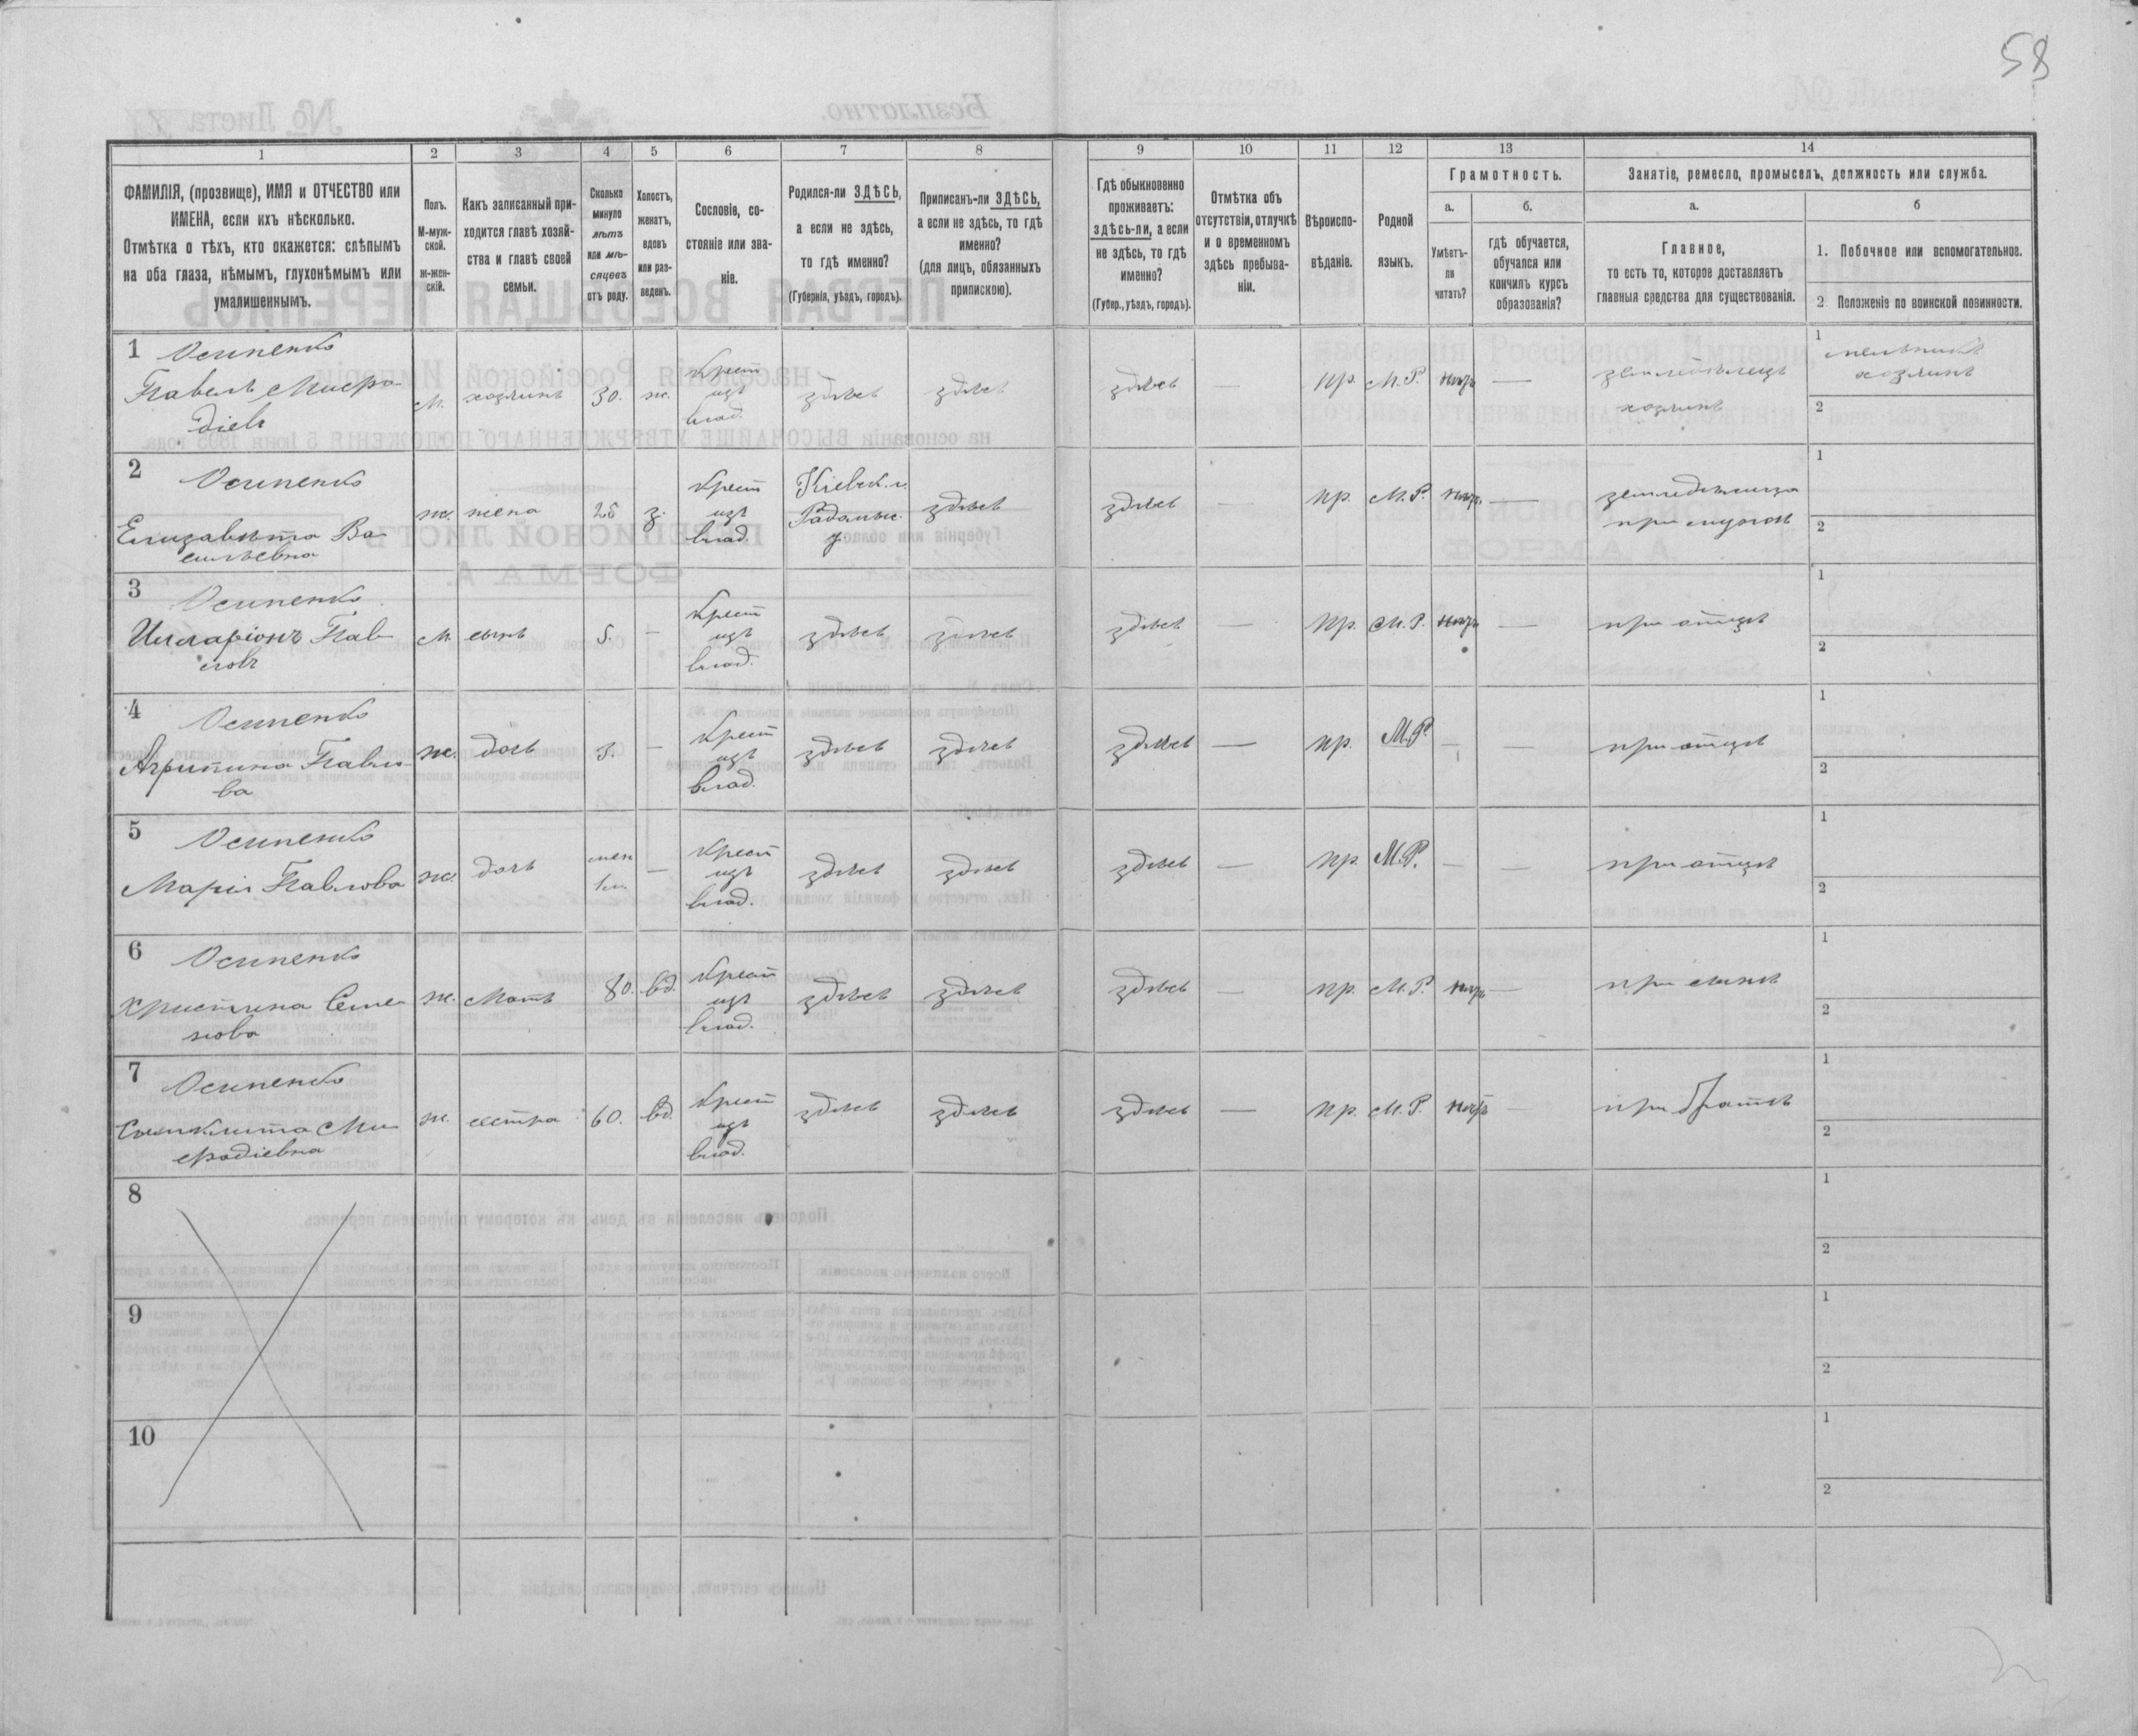 58
1 2 3 4 5 6 7 8 9 10 11 12 13 14
ФАМИЛІЯ, (прозвище), ИМЯ и ОТЧЕСТВО или
ИМЕНА, если ихъ нѣсколько.
Отмѣтка о тѣхъ, кто окажется: слѣпымъ
на оба глаза, нѣмымъ, глухонѣмымъ или
умалишеннымъ.
Полъ.
М-муж-
ской.
ж-жен-
скій.
Какъ записанный при-
ходится главѣ хозяй-
ства и главѣ своей
семьи.
Сколько
минуло
лѣтъ
или мѣ-
сяцевъ
отъ роду.
Холостъ,
женатъ,
вдовъ
или раз-
веденъ.
Сословіе, со-
стояніе или зва-
ніе.
Родился-ли ЗДѢСЬ,
а если не здѣсь,
то гдѣ именно?
(Губернія, уѣздъ, городъ).
Приписанъ-ли ЗДѢСЬ,
а если не здѣсь, то гдѣ
именно?
(для лицъ, обязанныхъ
припискою).
Гдѣ обыкновенно
проживаетъ:
здѣсь-ли, а если
не здѣсь, то гдѣ
именно?
(Губер., уѣздъ, городъ).
Отмѣтка объ
отсутствіи, отлучкѣ
и о временномъ
здѣсь пребыва-
ніи.
Вѣроиспо-
вѣданіе.
Родной
языкъ.
Грамотность.
а.
Умѣетъ-
ли
читать?
б.
гдѣ обучается,
обучался или
кончилъ курсъ
образованія?
Занятіе, ремесло, промыселъ, должность или служба.
а.
Главное,
то есть то, которое доставляетъ
главныя средства для существованія.
б
1. Побочное или вспомогательное.
2. Положеніе по воинской повинности.
1 Осипенко
Павелъ
м. хозяинъ 30. ж. Крест изъ влад. здѣсь здѣсь здѣсь — пр. М.Р. — земледѣлецъ хозяинъ
1 мельникъ хозяинъ
2
2 Осипенко
Елизавѣта Ва
сильевна
ж. жена з. Крест изъ влад. Кіевск. г. Радомыс. у здѣсь здѣсь — пр. М.Р. —
при мужѣ
1
2
3 Осипенко
Илларіонъ Пав
ловъ
м. сынъ 5. — Крест изъ влад. здѣсь здѣсь здѣсь — пр. М.Р. — при отцѣ
1
2
4 Осипенко
Агрипина Павло
ва
ж. дочь 3. — Крест изъ влад. здѣсь здѣсь здѣсь — пр. М.Р. — — при отцѣ
1
2
5 Осипенко
Марія Павлова
ж. дочь — Крест изъ влад. здѣсь здѣсь здѣсь — пр. М.Р. — — при отцѣ
1
2
6 Осипенко
Христина Семе
нова
ж. Мать 80. вд. Крест изъ влад. здѣсь здѣсь здѣсь — пр. М.Р. — при сынѣ
1
2
7 Осипенко
ж. сестра 60. вд. Крест изъ влад. здѣсь здѣсь здѣсь — пр. М.Р. — при братѣ
1
2
8
1
2
9
1
2
10
1
2